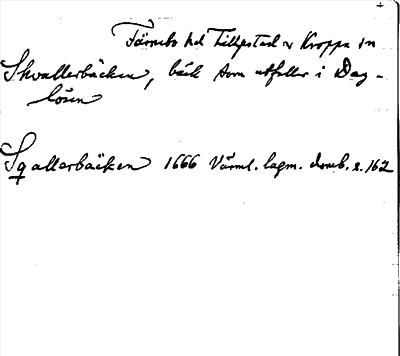 Färnebo hd Filipstad o Kroppa sn
Skvallerbäcken, bäck som utfaller i Dag-
lösen
Sqallerbäcken 1666 Värml. lagm. domb. s. 162